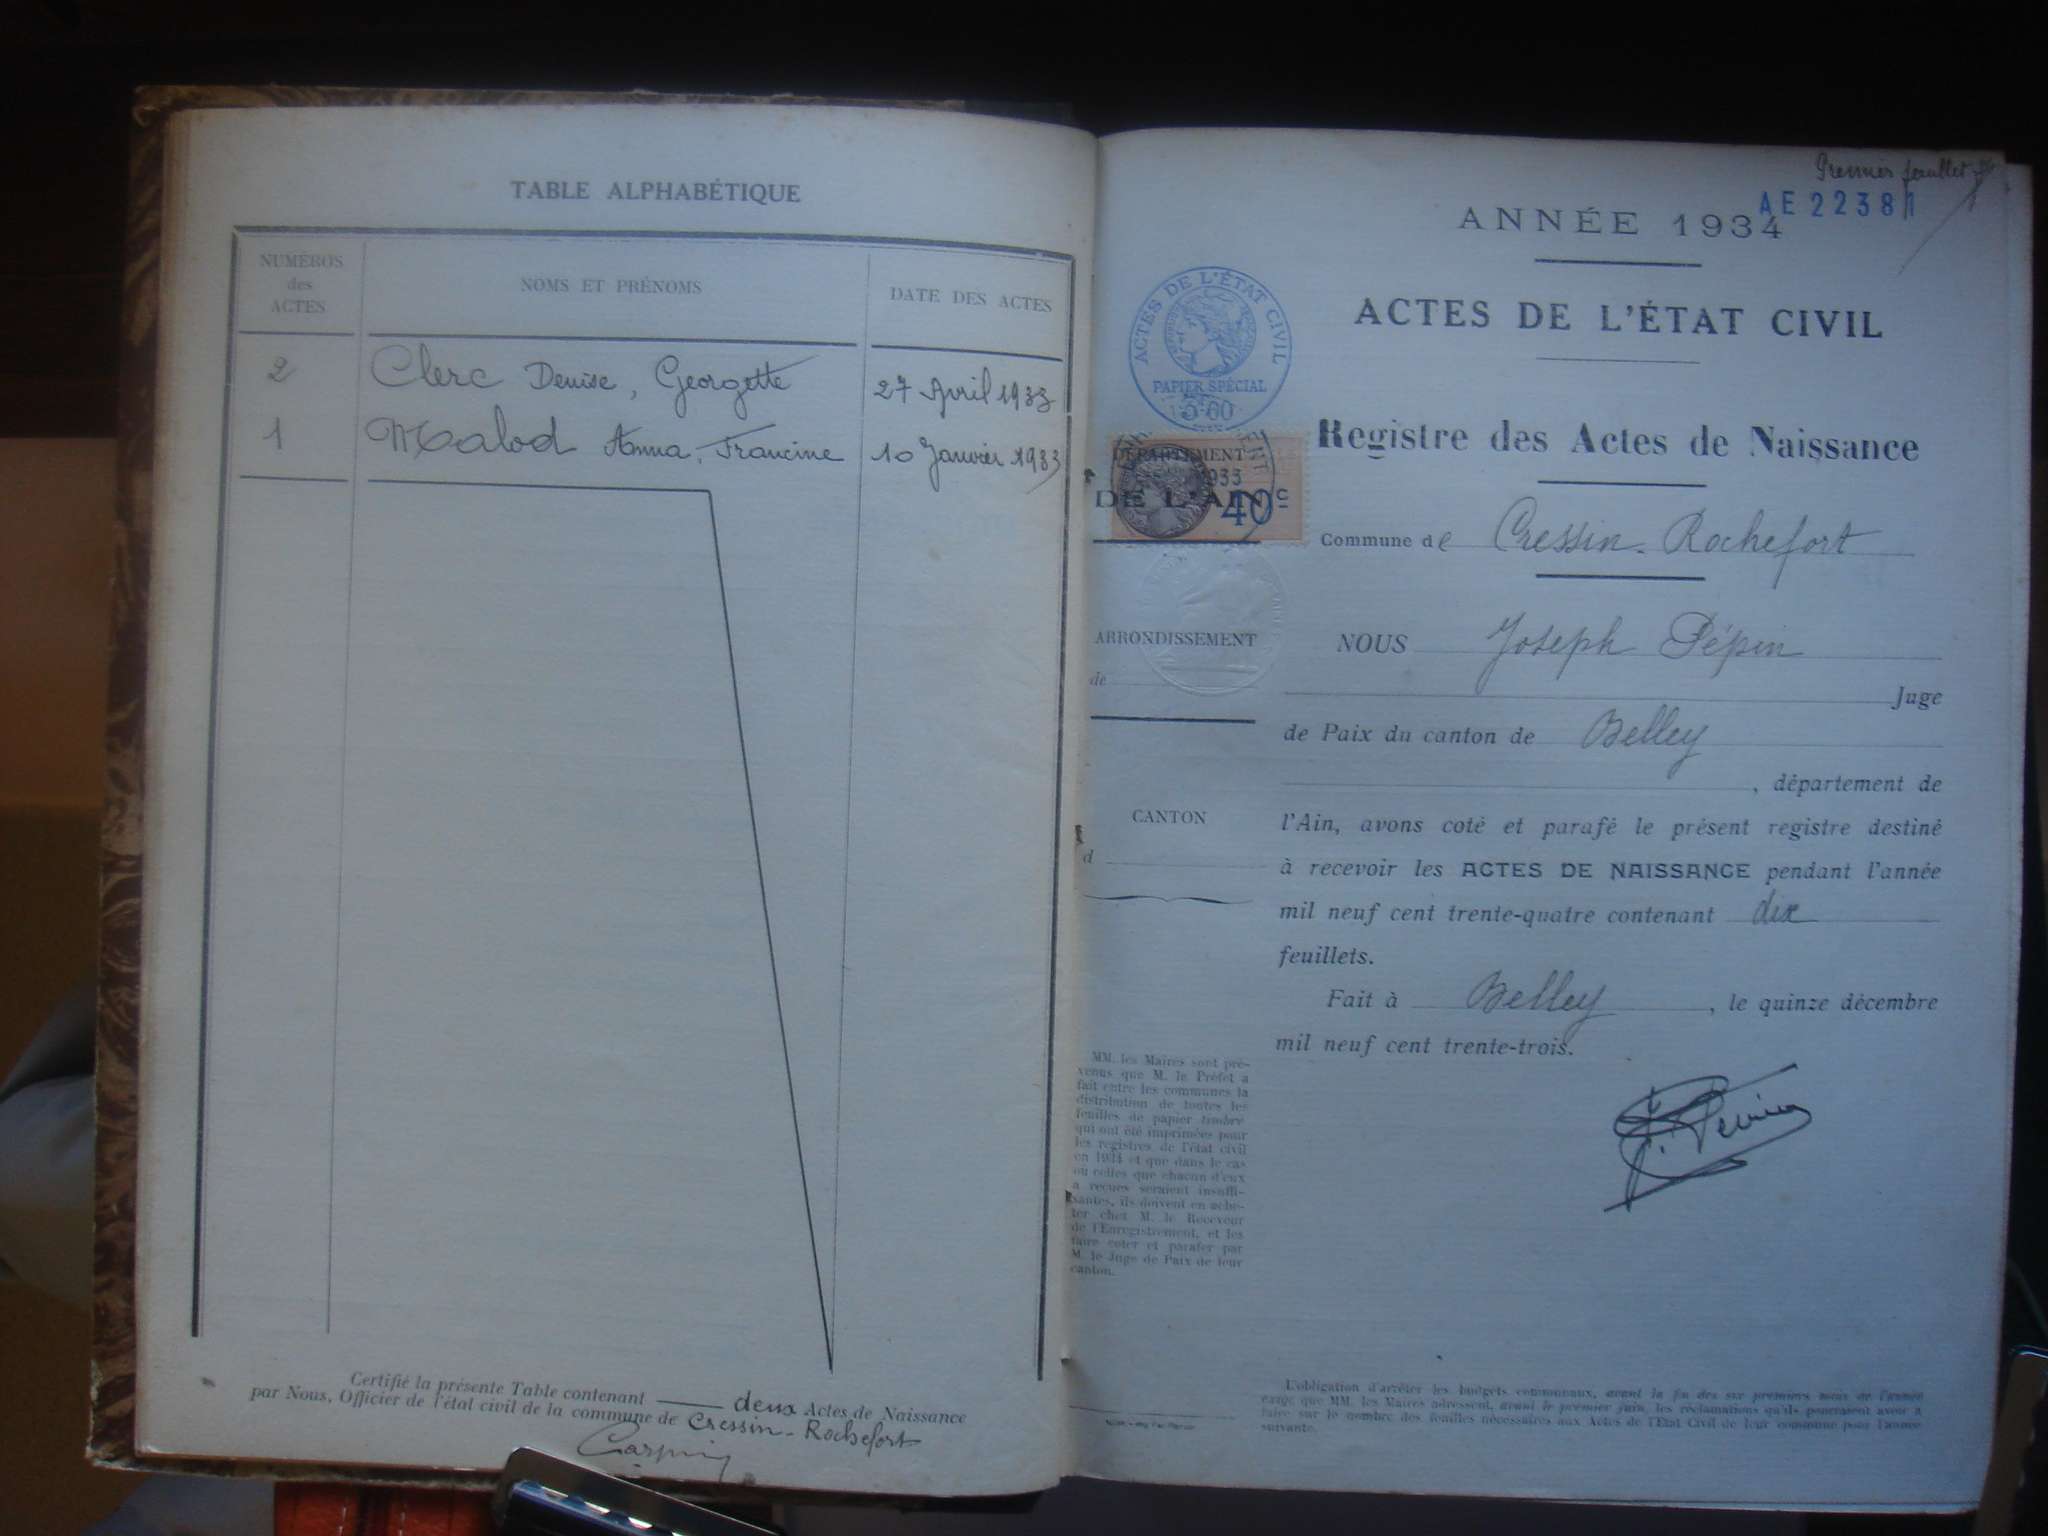 TABLE ALPHABÉTIQUE
NUMÉROS
des
ACTES
NOMS ET PRÉNOMS
DATE DES ACTES
2 Clerc Denise, Georgette 27 Avril 1933
1 Malod Anna, Francine 10 Janvier 1933
Certifié la présente Table contenant deux Actes de Naissance
par Nous, Officier de l'état civil de la commune de Cressin-Rochefort
Premier feuillet
AE 22381
ANNÉE 1934
ACTES DE L'ÉTAT CIVIL
ACTES DE L'ÉTAT CIVIL
PAPIER SPÉCIAL
5.60
DÉPARTEMENT
1933
DE L'AIN
40c
Registre des Actes de Naissance
Commune de Cressin-Rochefort
ARRONDISSEMENT
de
CANTON
d
NOUS Joseph Pépin
Juge
de Paix du canton de Belley
, département de
l'Ain, avons coté et parafé le présent registre destiné
à recevoir les ACTES DE NAISSANCE pendant l'année
mil neuf cent trente-quatre contenant dix
feuillets.
Fait à Belley, le quinze décembre
mil neuf cent trente-trois.
MM. les Maires sont pré-
venus que M. le Préfet a
fait entre les communes la
distribution de toutes les
feuilles de papier timbré
qui ont été imprimées pour
les registres de l'état civil
en 1934 et que dans le cas
où celles que chacun d'eux
a reçues seraient insuffi-
santes, ils doivent en ache-
ter chez M. le Receveur
de l'Enregistrement, et les
faire coter et parafer par
M. le Juge de Paix de leur
canton.
L'obligation d'arrêter les budgets communaux, avant la fin des six premiers mois de l'année
exige que MM. les Maires adressent, avant le premier juin, les réclamations qu'ils pourraient avoir à
faire sur le nombre des feuilles nécessaires aux Actes de l'Etat Civil de leur commune pour l'année
suivante.